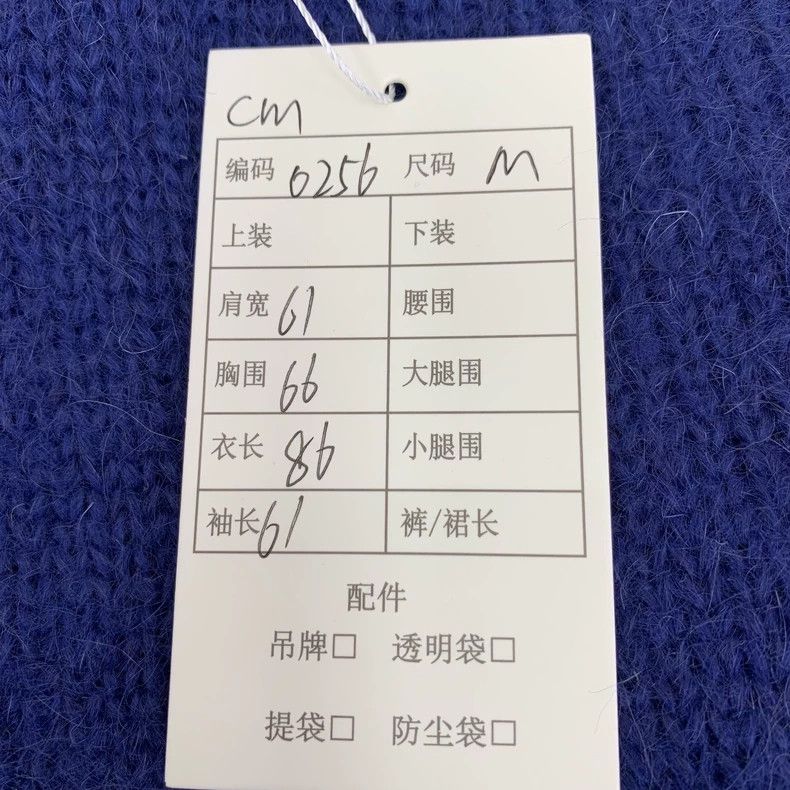 cm
编码 0256 尺码 M
上装 下装
肩宽 61 腰围
胸围 66 大腿围
衣长 86 小腿围
袖长 61 裤/裙长
配件
吊牌□ 透明袋□
提袋□ 防尘袋□